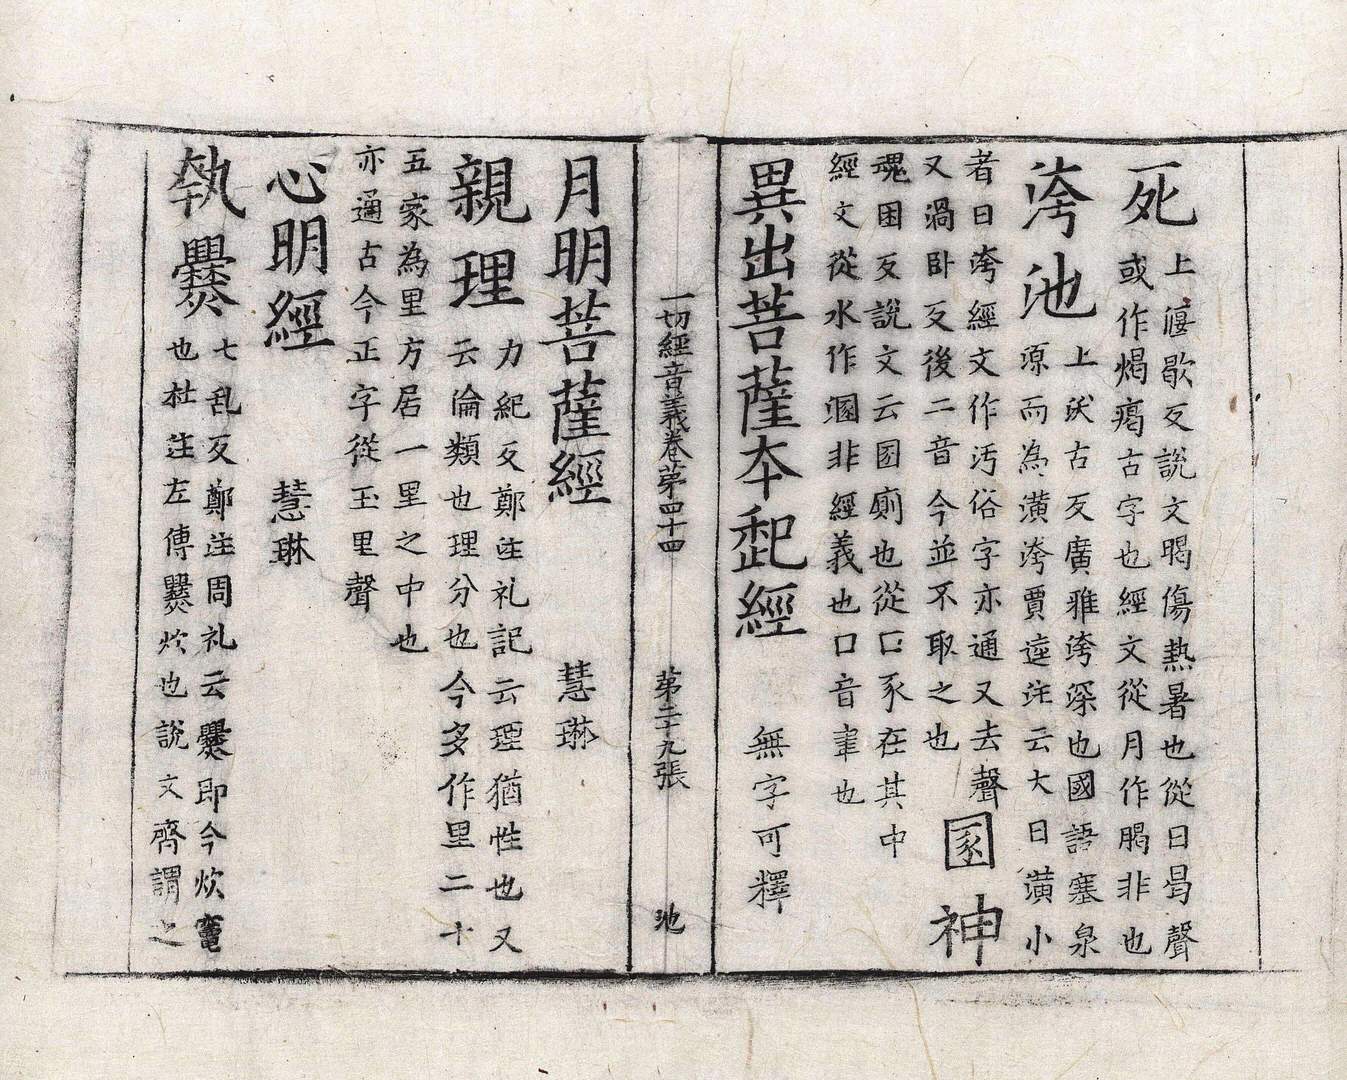 死
上歇反說文暍傷熱暑也從日曷聲
或作古字也經文從月作非也
洿池
上沃古反廣雅洿深也國語塞泉
源而為潢洿賈逵注云大曰潢小
者曰洿經文作汚俗字亦通又去聲
又渦卧反後二音今並不取之也
圂神
魂困反說文云圂廁也從囗豕在其中
經文從水作溷非經義也囗音韋也
異出菩薩本起經 無字可釋
一切經音義卷苐四十四 苐二十九張 池
月明菩薩經 慧琳
親理
力紀反鄭注礼記云理猶性也又
云倫類也理分也今多作里二十
五家為里方居一里之中也
亦通古今正字從玉里聲
心明經 慧琳
執爨
七乱反鄭注周礼云爨即今炊竈
也杜注左傳爨炊也說文齊謂之